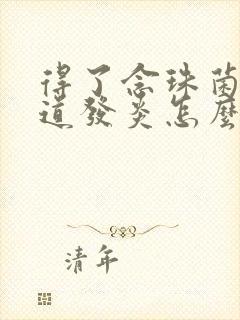 得了念珠菌
道發炎怎麼
清年